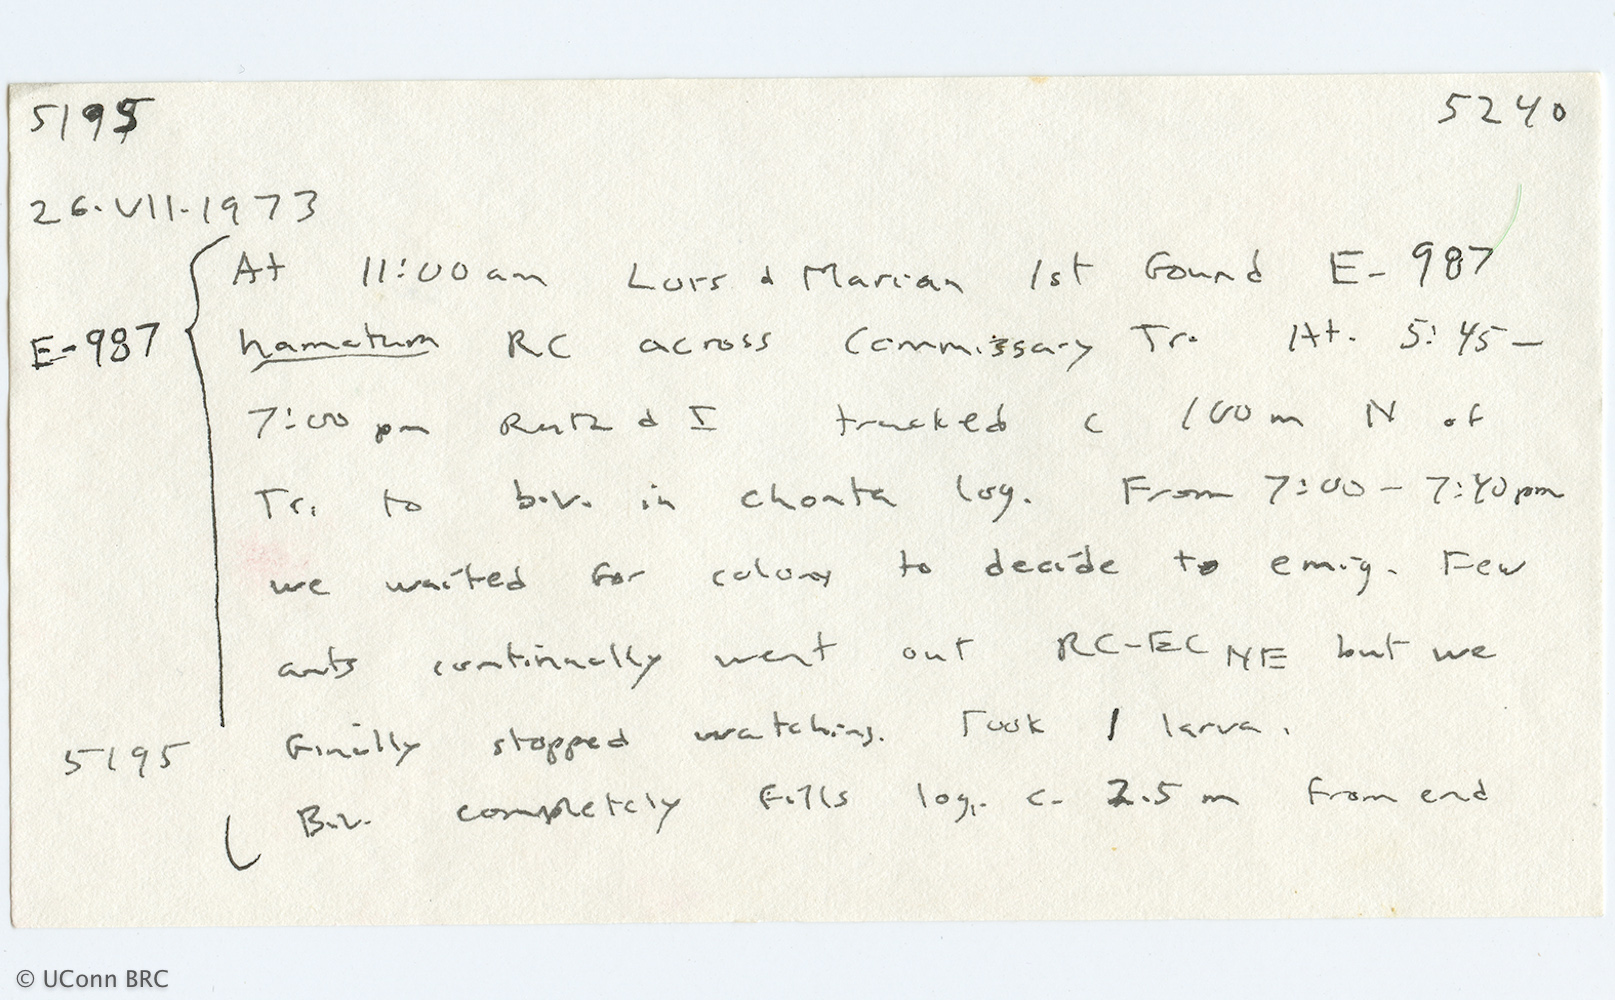 5195 5240
26.VII.1973
At 11:00 am Lois & Marian 1st found E-987
E-987 hamatum RC across Commissary Tr. At. 5:45-
7:00 pm Ruth & I tracked c 100 m N of
Tr. to biv. in chonta log. From 7:00 - 7:40 pm
we waited for colony to decide to emig. Few
ants continually went out RC-EC NE but we
finally stopped watching. Took 1 larva.
5195
Biv. completely fills log. c. 2.5 m from end
© UConn BRC